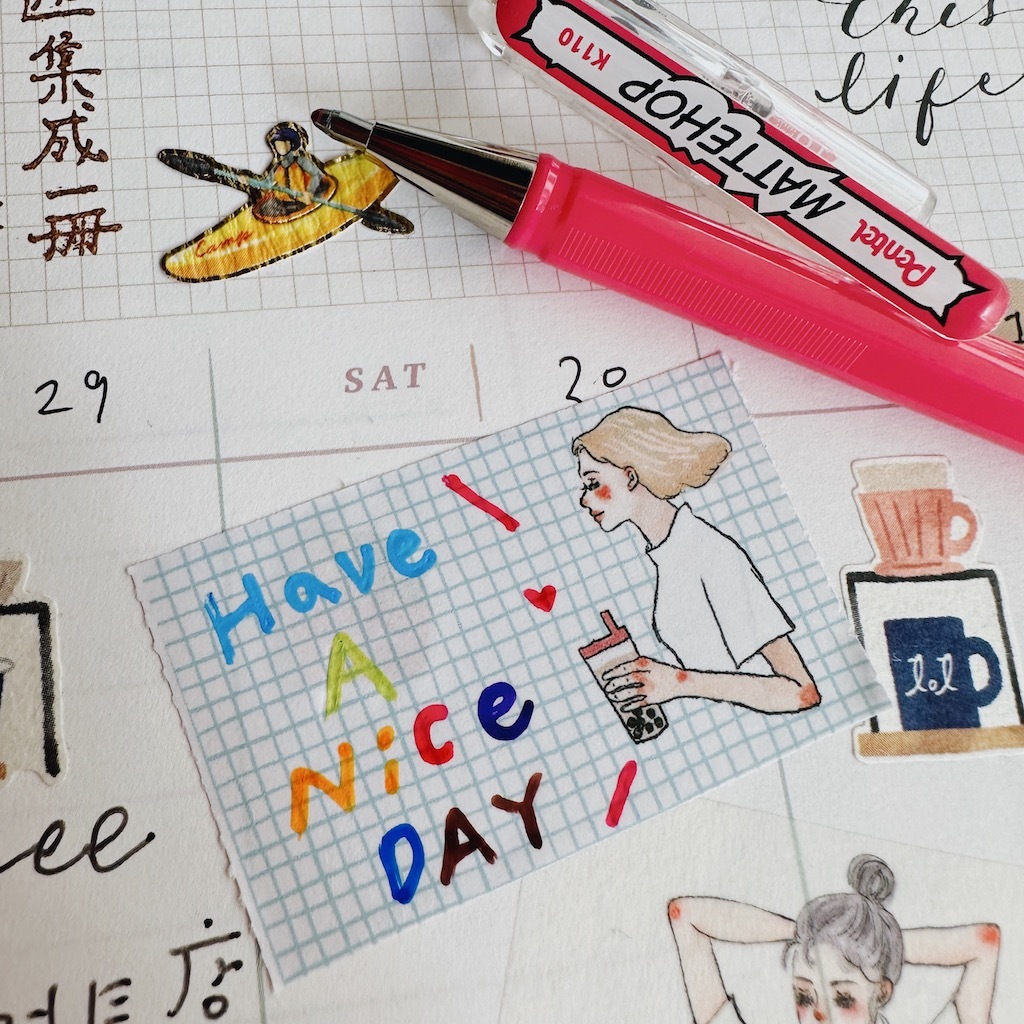 集成一冊
this
life
K110
Pentel MATTEHOP
Camp
29
SAT
20
Have
A
Nice
DAY
lol
店